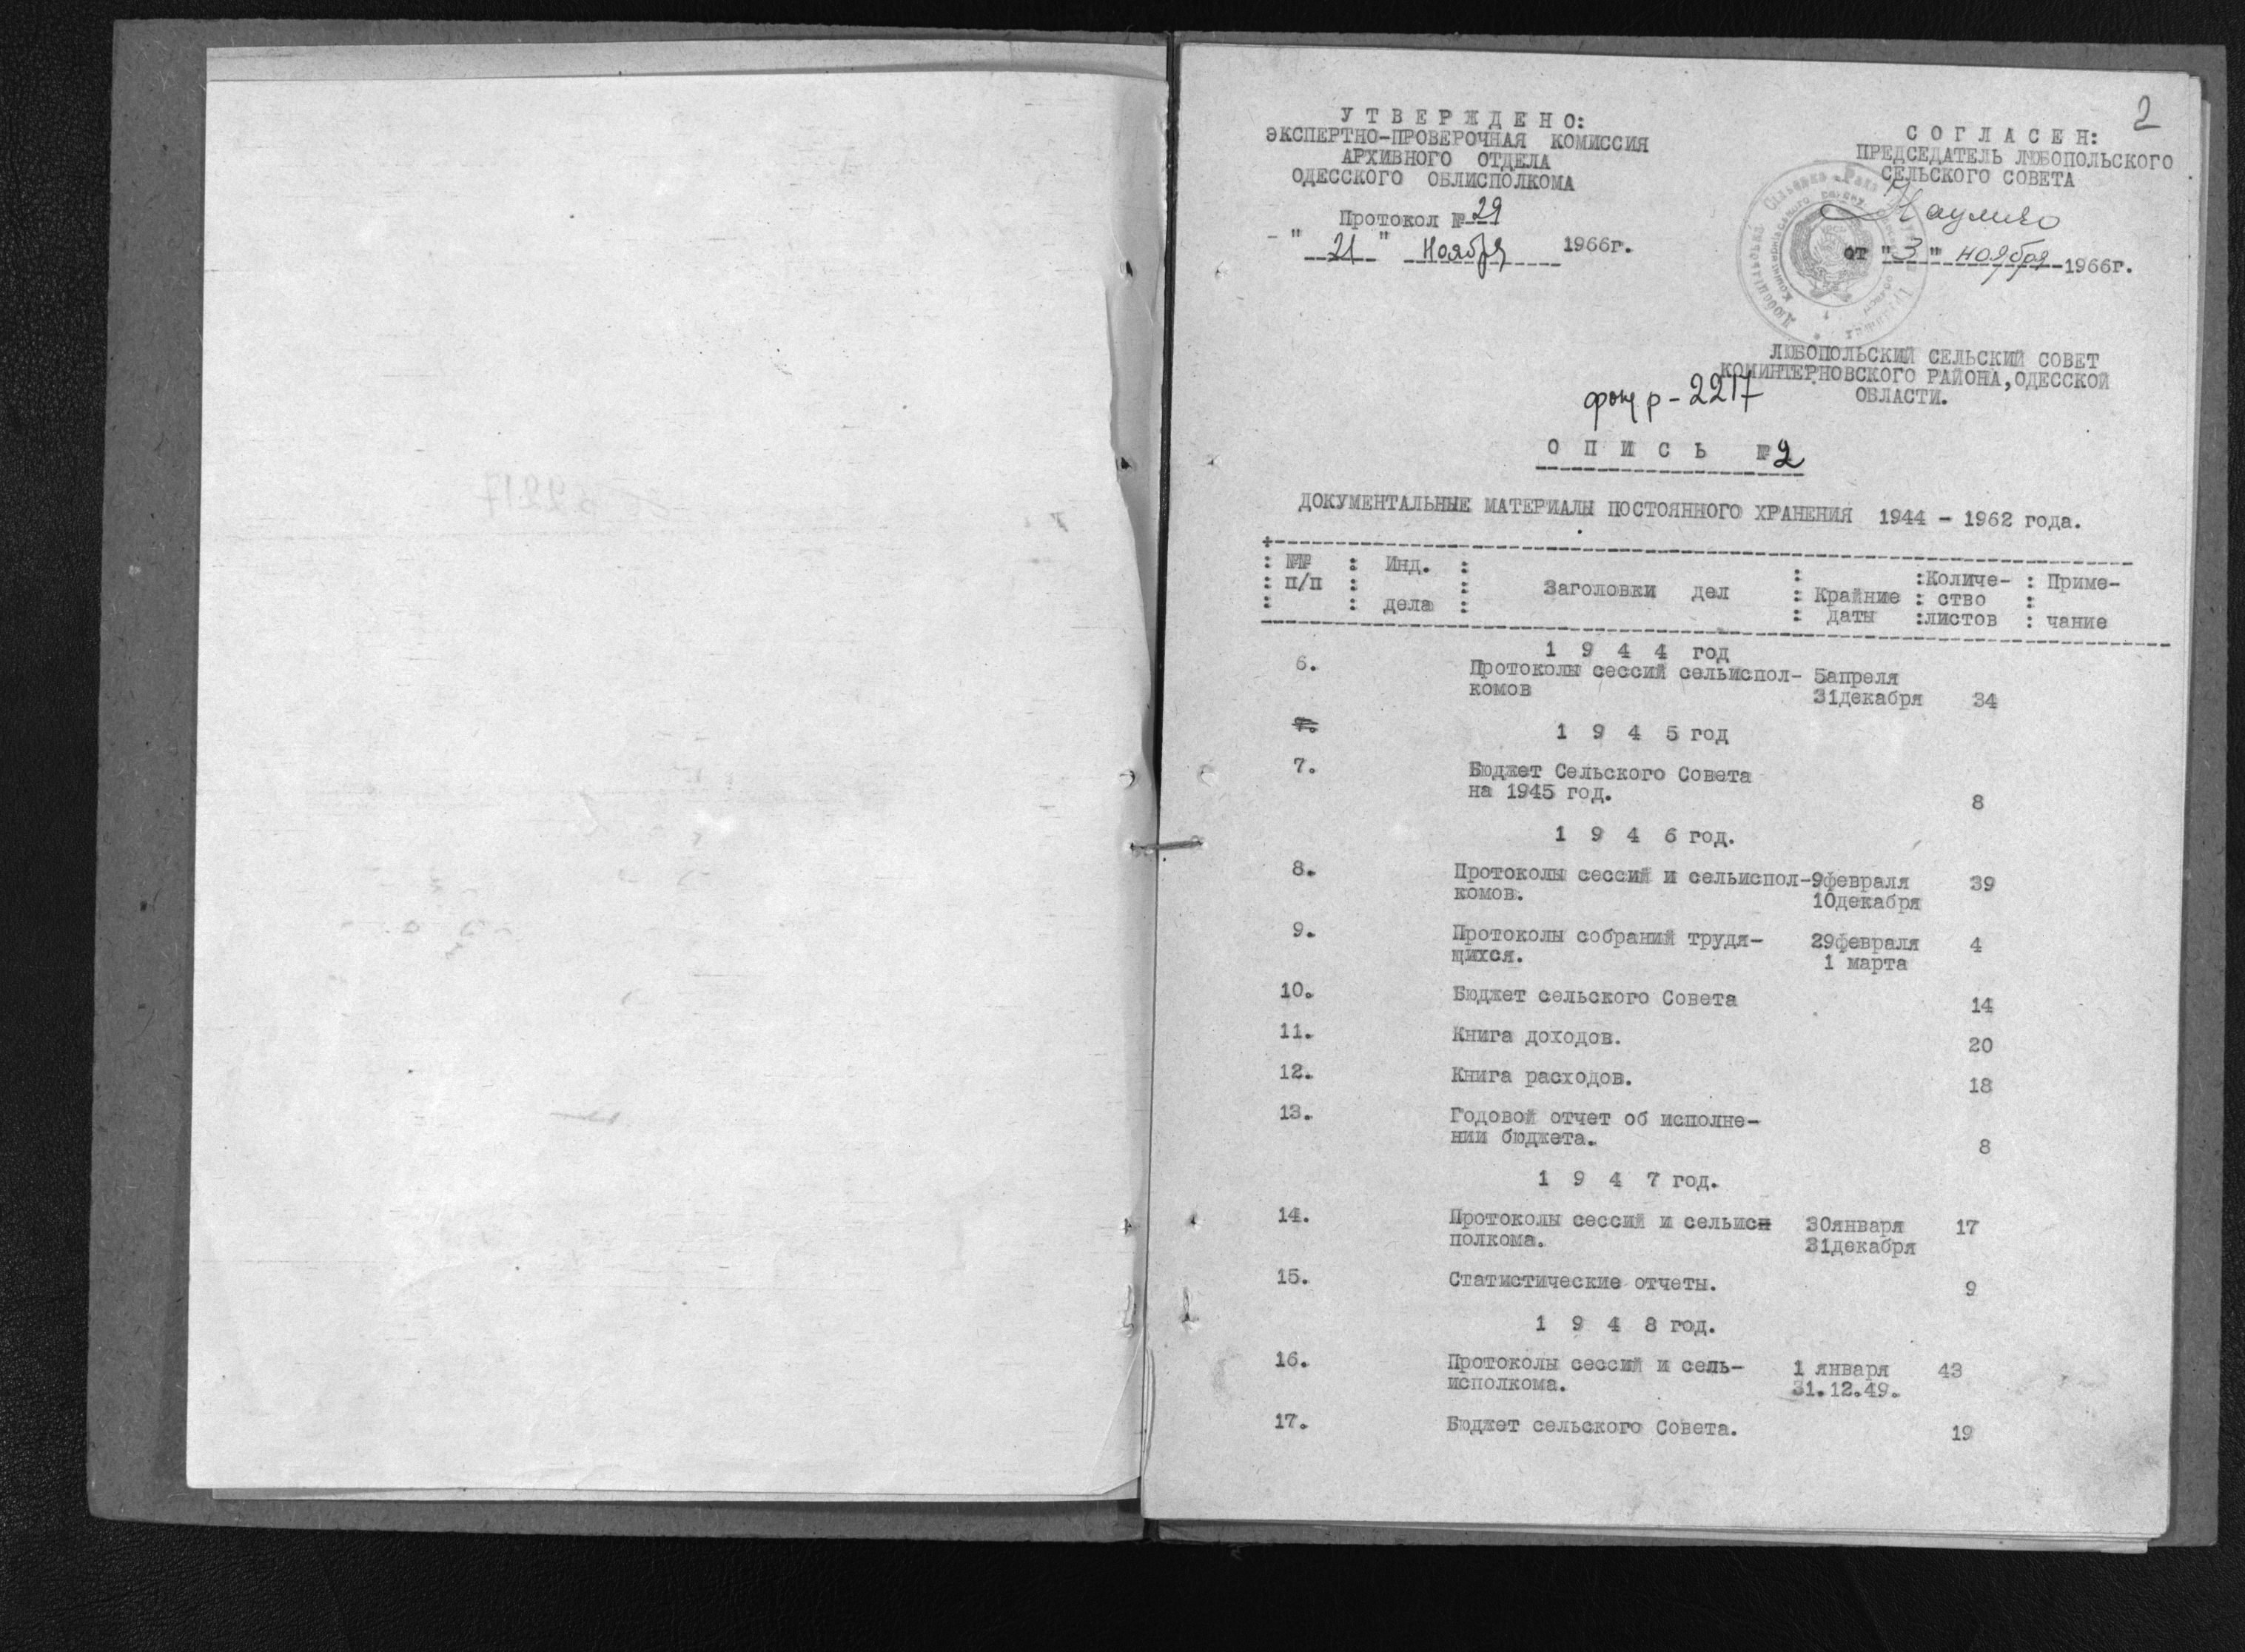 2
У Т В Е Р Ж Д Е Н О:
ЭКСПЕРТНО-ПРОВЕРОЧНАЯ КОМИССИЯ
АРХИВНОГО ОТДЕЛА
ОДЕССКОГО ОБЛИСПОЛКОМА
Протокол № 29
- " 21 " ноября 1966г.
С О Г Л А С Е Н:
ПРЕДСЕДАТЕЛЬ ЛЮБОПОЛЬСКОГО
СЕЛЬСКОГО СОВЕТА
от "3" ноября 1966г.
ЛЮБОПОЛЬСКИЙ СЕЛЬСКИЙ СОВЕТ
КОМИНТЕРНОВСКОГО РАЙОНА, ОДЕССКОЙ
ОБЛАСТИ.
фонд р-2217
О П И С Ь №2
ДОКУМЕНТАЛЬНЫЕ МАТЕРИАЛЫ ПОСТОЯННОГО ХРАНЕНИЯ 1944 - 1962 года.
№№ : Инд. : : :Количе- : Приме-
п/п : : Заголовки дел : Крайние : ство :
: дела : : даты :листов : чание
1 9 4 4 год
6. Протоколы сессий сельиспол- 5апреля
комов 31декабря 34
7.
1 9 4 5 год
7. Бюджет Сельского Совета
на 1945 год. 8
1 9 4 6 год.
8. Протоколы сессий и сельиспол-9февраля 39
комов. 10декабря
9. Протоколы собраний трудя- 29февраля 4
щихся. 1 марта
10. Бюджет сельского Совета 14
11. Книга доходов. 20
12. Книга расходов. 18
13. Годовой отчет об исполне-
нии бюджета. 8
1 9 4 7 год.
14. Протоколы сессий и сельисп 30января 17
полкома. 31декабря
15. Статистические отчеты. 9
1 9 4 8 год.
16. Протоколы сессий и сель- 1 января 43
исполкома. 31.12.49.
17. Бюджет сельского Совета. 19